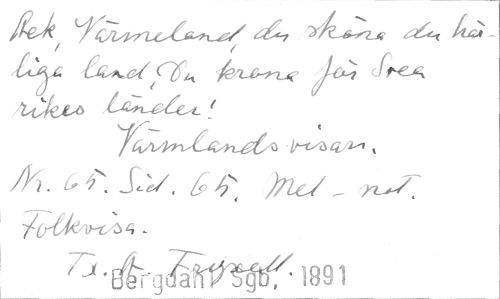 Ack, Värmeland, du sköna du här-
liga land, Du krona för Svea
rikes länder!
Värmlandsvisan.
Nr. 65. Sid. 65. Mel-not.
Folkvisa.
Tx. A. Fryxell.
Bergdahl Sgb, 1891